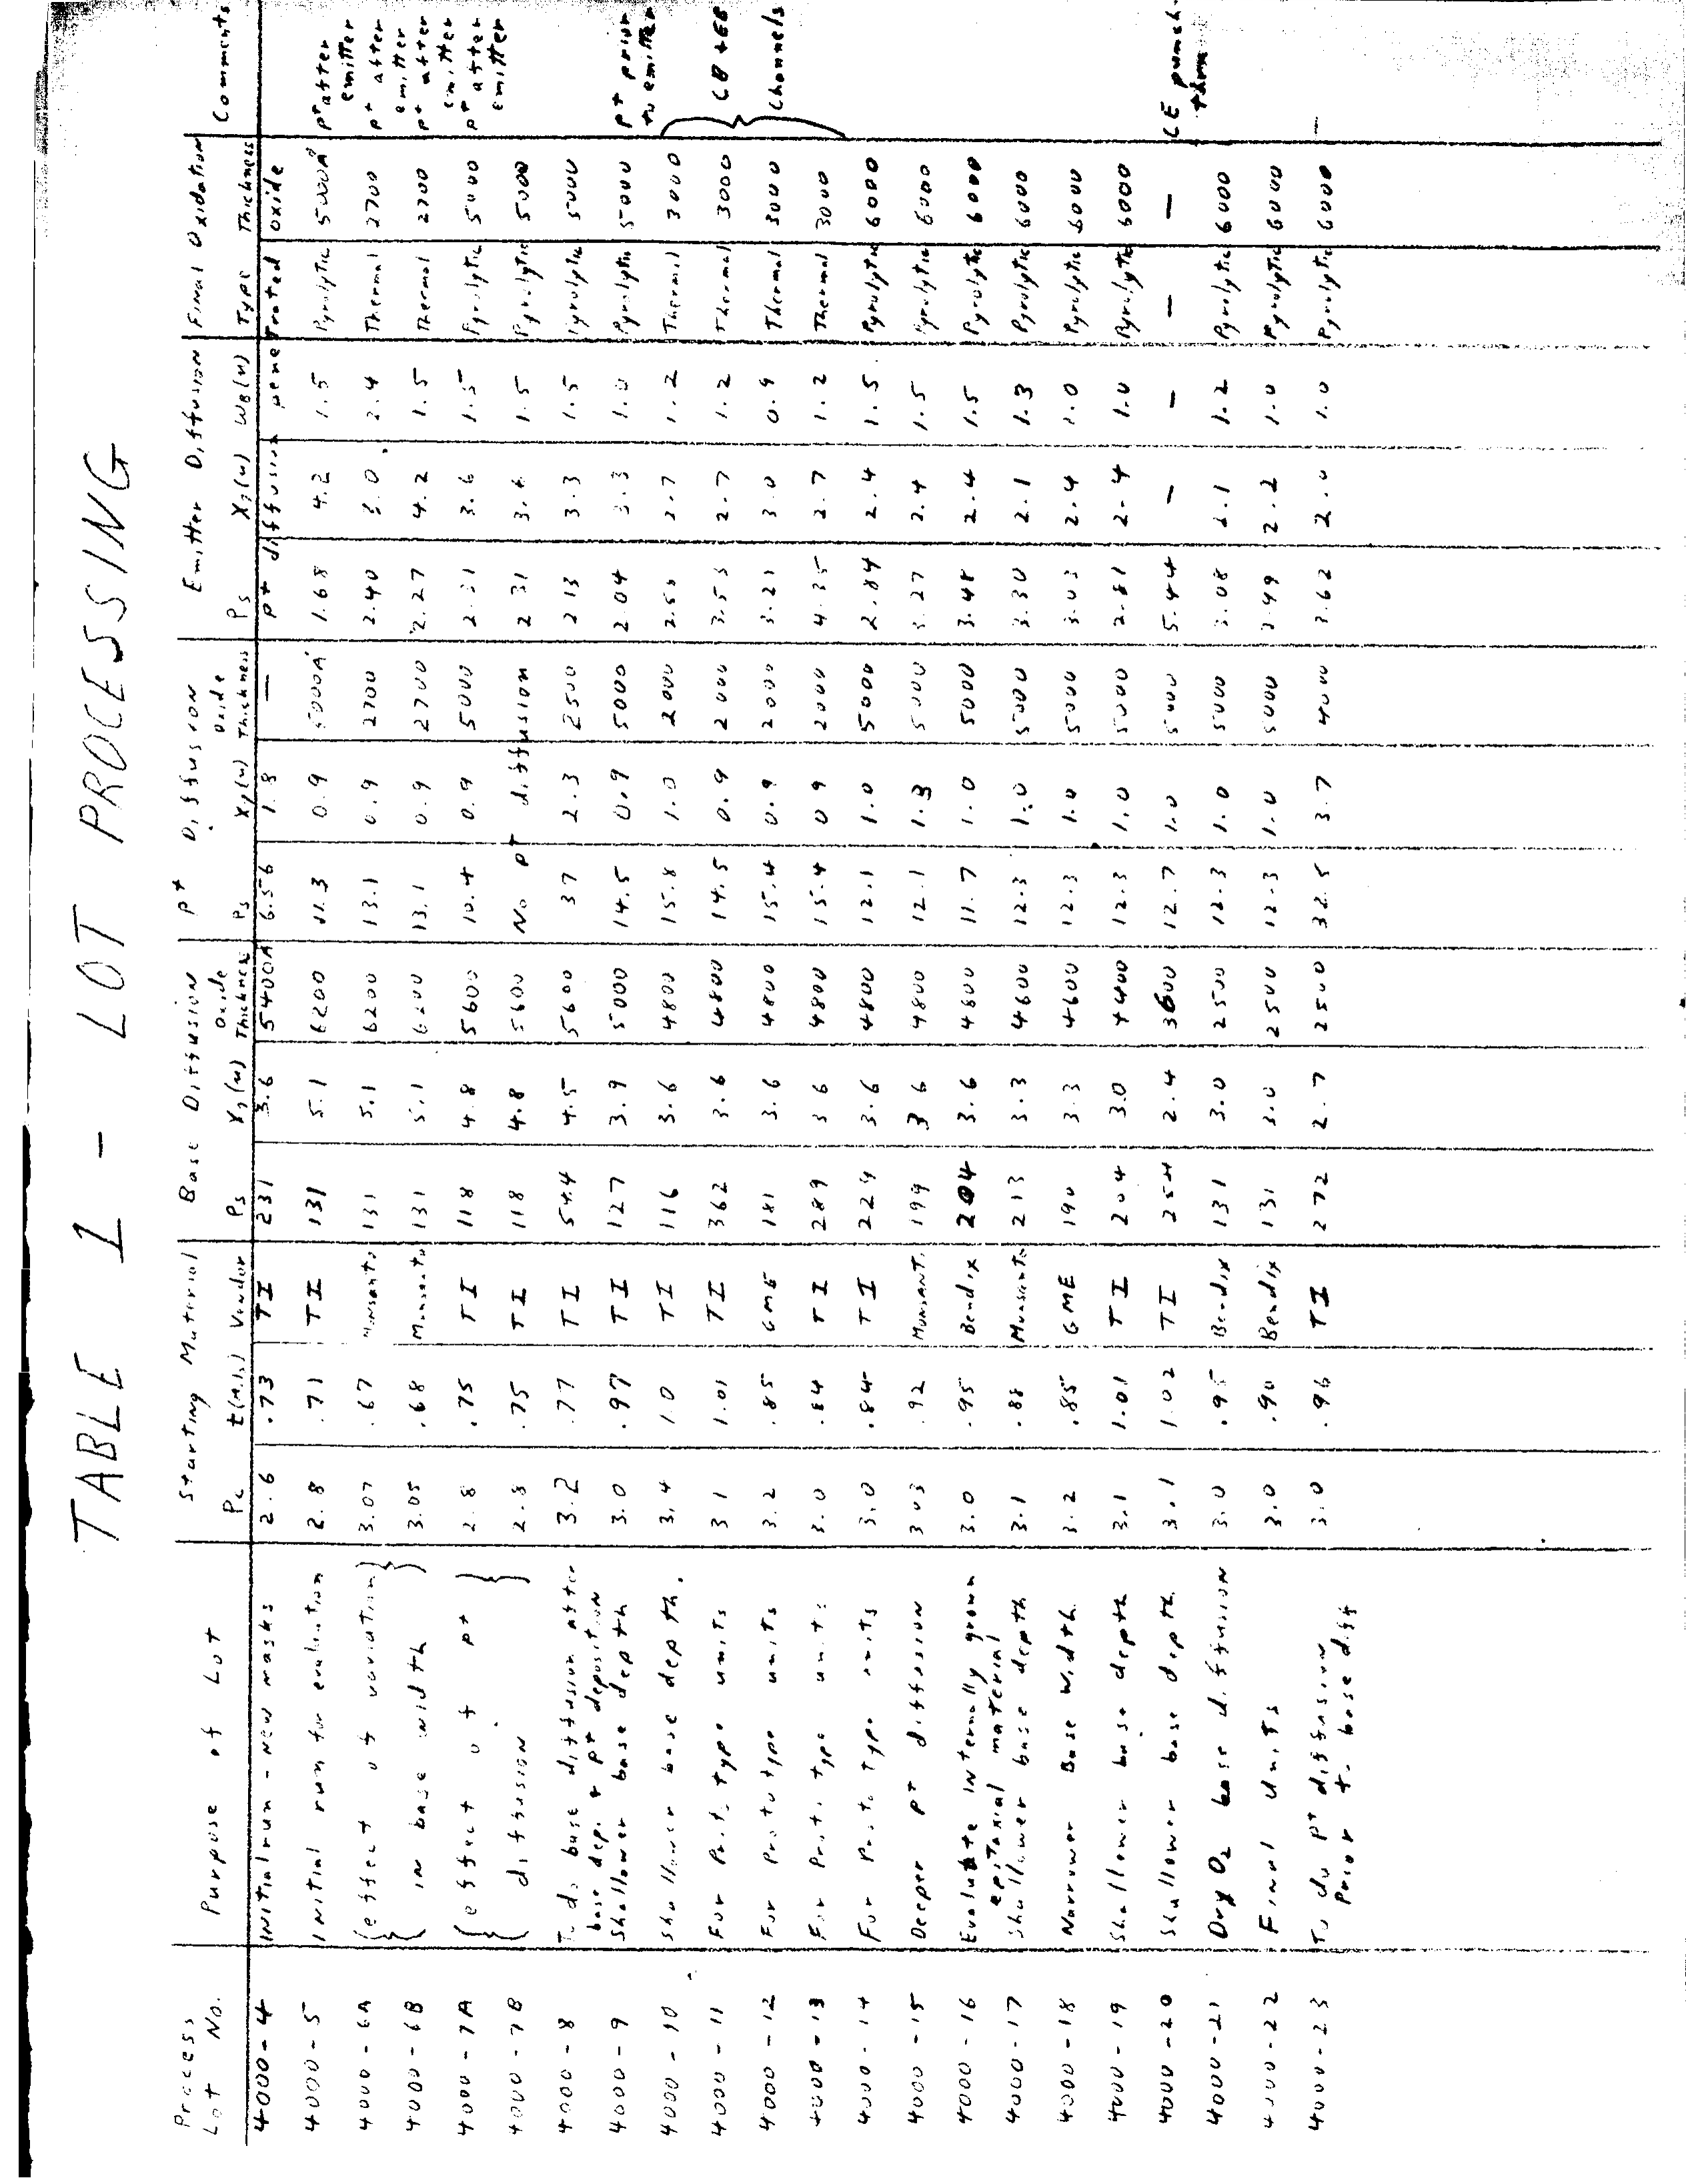 TABLE I - LOT PROCESSING
Process Lot No. Purpose of Lot Starting Material Base Diffusion P+ Diffusion Emitter Diffusion Final Oxidation Comments
Pc t(Mils) Vendor Ps Xj(u) Oxide Thickness Ps Xj(u) Oxide Thickness Ps Xj(u) WB(u) Type Thickness
4000-4 Initial run - New masks 2.6 .73 TI 231 3.6 5400A 6.56 1.8 — P+ diffusion penetrated oxide
4000-5 Initial run for evaluation 2.8 .71 TI 131 5.1 6200 11.3 0.9 5000A 1.68 4.2 1.5 Pyrolytic 5000A P+ after emitter
4000-6A {effect of variation} 3.07 .67 Monsanto 131 5.1 6200 13.1 0.9 2700 2.40 1 2.4 Thermal 2700 P+ after emitter
4000-6B { in base width } 3.05 .68 Monsanto 131 5.1 6200 13.1 0.9 2700 2.27 4.2 1.5 Thermal 2700 P+ after emitter
4000-7A {effect of P+ } 2.8 .75 TI 118 4.8 5600 10.4 0.9 5000 2.31 3.6 1.5 Pyrolytic 5000 P+ after emitter
4000-7B { diffusion } 2.8 .75 TI 118 4.8 5600 No P+ diffusion 2 31 3.6 1.5 Pyrolytic 5000
4000-8 To do base diffusion after base dep. & P+ deposition 3.2 .77 TI 54.4 4.5 5600 37 2.3 2500 2 13 3.3 1.5 Pyrolytic 5000
4000-9 Shallower base depth 3.0 .97 TI 127 3.9 5000 14.5 0.9 5000 2.04 3.3 1.0 Pyrolytic 5000 P+ prior to emitter
4000-10 Shallower base depth. 3.4 1.0 TI 116 3.6 4800 15.8 1.0 2000 2.7 1.2 Thermal 3000
4000-11 For Proto type units 3 1 1.01 TI 362 3.6 4800 14.5 0.9 2000 3.53 2.7 1.2 Thermal 3000 } CB + EB
4000-12 For Proto type units 3.2 .85 GME 181 3.6 4800 15.4 0.9 2000 3.21 3.0 0.9 Thermal 3000 Channels
4000-13 For Proto type units 3.0 .84 TI 289 3 6 4800 15.4 0 9 2000 4.35 2.7 1.2 Thermal 3000
4000-14 For Proto type units 3.0 .84 TI 229 3.6 4800 12.1 1.0 5000 2.84 2.4 1.5 Pyrolytic 6000
4000-15 Deeper P+ diffusion 3 03 .92 Monsanto 199 3 6 4800 12.1 1.3 5000 3.27 2.4 1.5 Pyrolytic 6000
4000-16 Evaluate internally grown epitaxial material 3.0 .95 Bendix 204 3.6 4800 11.7 1.0 5000 3.48 2.4 1.5 Pyrolytic 6000
4000-17 Shallower base depth 3.1 .88 Monsanto 213 3.3 4600 12.3 1.0 5000 3.30 2.1 1.3 Pyrolytic 6000
4000-18 Narrower Base width 3.2 .85 GME 190 3.3 4600 12.3 1.0 5000 3.03 2.4 1.0 Pyrolytic 6000
4000-19 Shallower base depth 3.1 1.01 TI 204 3.0 4400 12.3 1.0 5000 2.81 2.4 1.0 Pyrolytic 6000
4000-20 Shallower base depth 3.1 1.02 TI 254 2.4 3600 12.7 1.0 5000 5.44 — — — — CE punch-thru
4000-21 Dry O2 base diffusion 3.0 .95 Bendix 131 3.0 2500 12.3 1.0 5000 3.08 2.1 1.2 Pyrolytic 6000
4000-22 Final Units 3.0 .90 Bendix 131 3.0 2500 12.3 1.0 5000 2.2 1.0 Pyrolytic 6000
4000-23 To do P+ diffusion Prior to base diff 3.0 .96 TI 272 2.7 2500 32.5 3.7 4000 3.62 2.0 1.0 Pyrolytic 6000 —